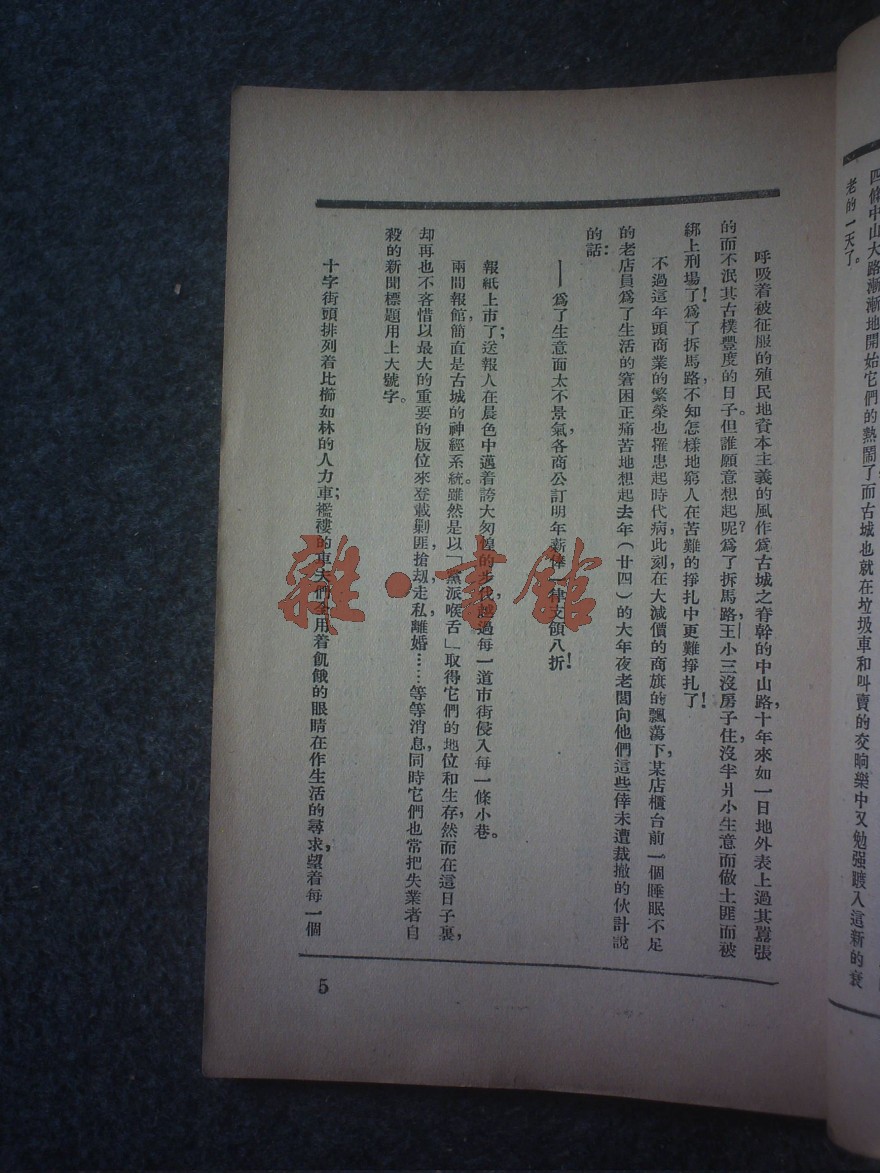 四條中山大路漸漸地開始它們的熱鬧了而古城也就在垃圾車和叫賣的交响樂中又勉强踱入這新的衰
老的一天了。
呼吸着被征服的殖民地資本主義的風作爲古城之脊幹的中山路，十年來如一日地外表上過其囂張
的而不泯其古樸豐度的日子。但誰願意想起呢？爲了拆馬路，王小三沒房子住，沒半爿小生意而做土匪而被
綁上刑場了！爲了拆馬路，不知怎樣地窮人在苦難的掙扎中更難掙扎了！
不過這年頭商業的繁榮也罹患起時代病，此刻在大減價的商旗的飄蕩下，某店櫃台前一個睡眠不足
的老店員爲了生活的窘困正痛苦地想起去年（廿四）的大年夜老闆向他們這些倖未遭裁撤的伙計說
的話：
——爲了生意面太不景氣，各商公訂明年薪俸一律支領八折！
報紙上市了；送報人在晨色中邁着誇大匆惶的步伐，越過每一道市街侵入每一條小巷。
兩間報館，簡直是古城的神經系統。雖然是以「黨派喉舌」取得它們的地位和生存，然而在這日子裏，
却再也不吝惜以最大的重要的版位來登載剿匪，搶劫，走私，離婚……等等消息，同時它們也常把失業者自
殺的新聞標題用上大號字。
十字街頭排列着比櫛如林的人力車；襤褸的車夫們全用着飢餓的眼睛在作生活的尋求，望着每一個
5
雜·書館